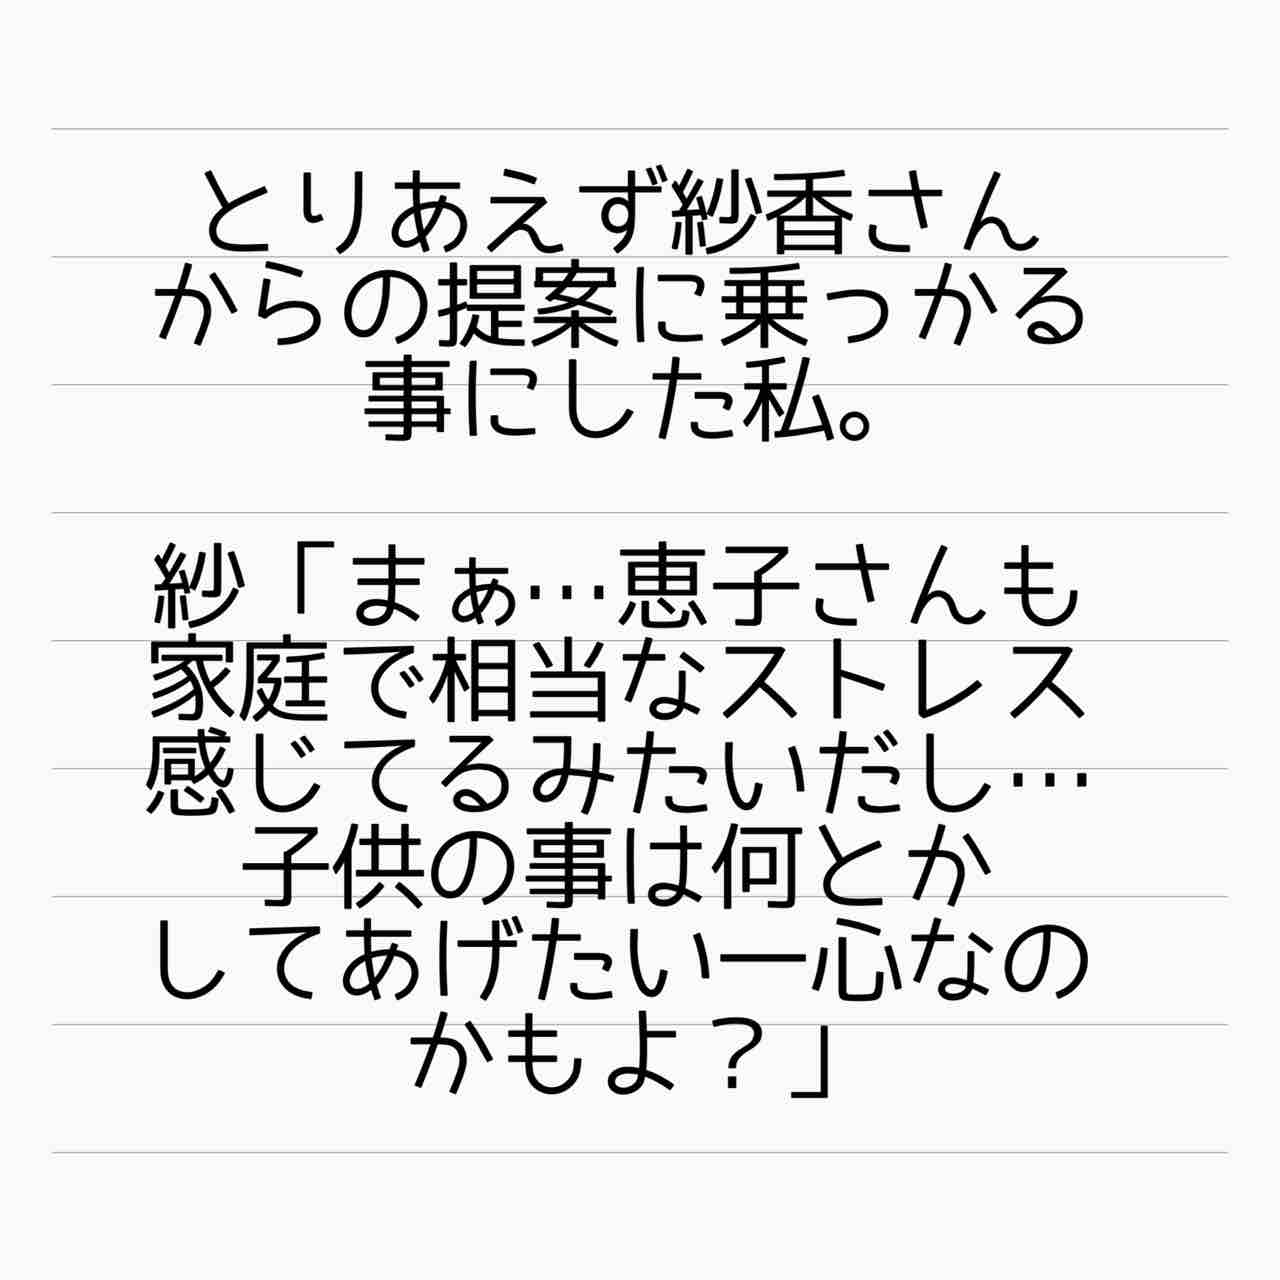 とりあえず紗香さん
からの提案に乗っかる
事にした私。
紗「まぁ…恵子さんも
家庭で相当なストレス
感じてるみたいだし…
子供の事は何とか
してあげたい一心なの
かもよ？」